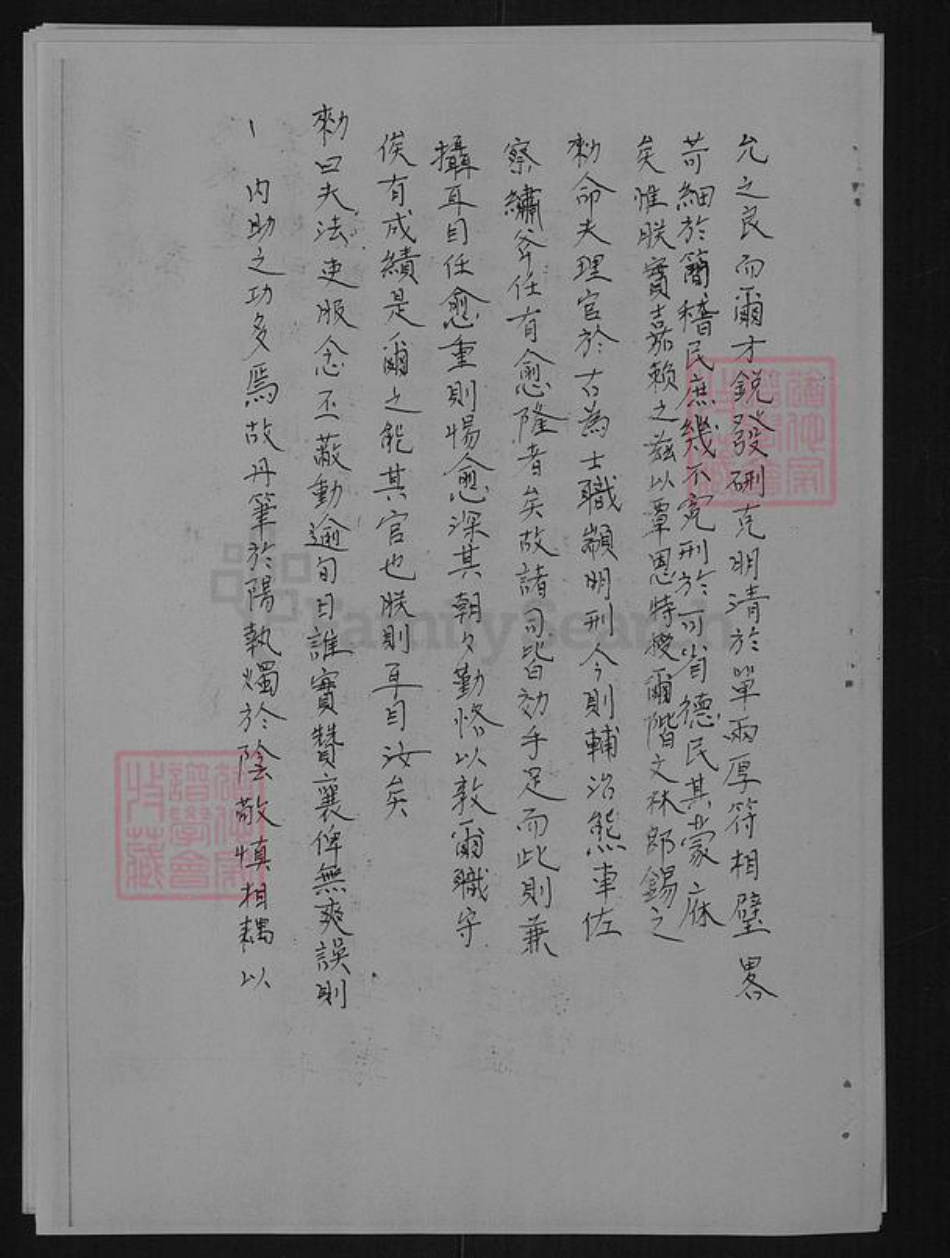 允之良而爾才銳發硎克明清於單兩厚符相璧畧
苛細於簡稽民庶幾不寃刑於可省德民其蒙庥
矣惟朕實嘉賴之茲以覃恩特授爾階文林郎錫之
勑命夫理官於古為士職顓明刑今則輔治熊車佐
察繡斧任有愈隆者矣故諸司皆効手足而此則兼
攝耳目任愈重則惕愈深其朝夕勤恪以敦爾職守
俟有成績是爾之能其官也朕則耳目汝矣
勑曰夫法吏服念丕蔽動逾旬日誰實贊襄俾無爽誤則
內助之功多焉故丹筆於陽執燭於陰敬慎相耦以
FamilySearch